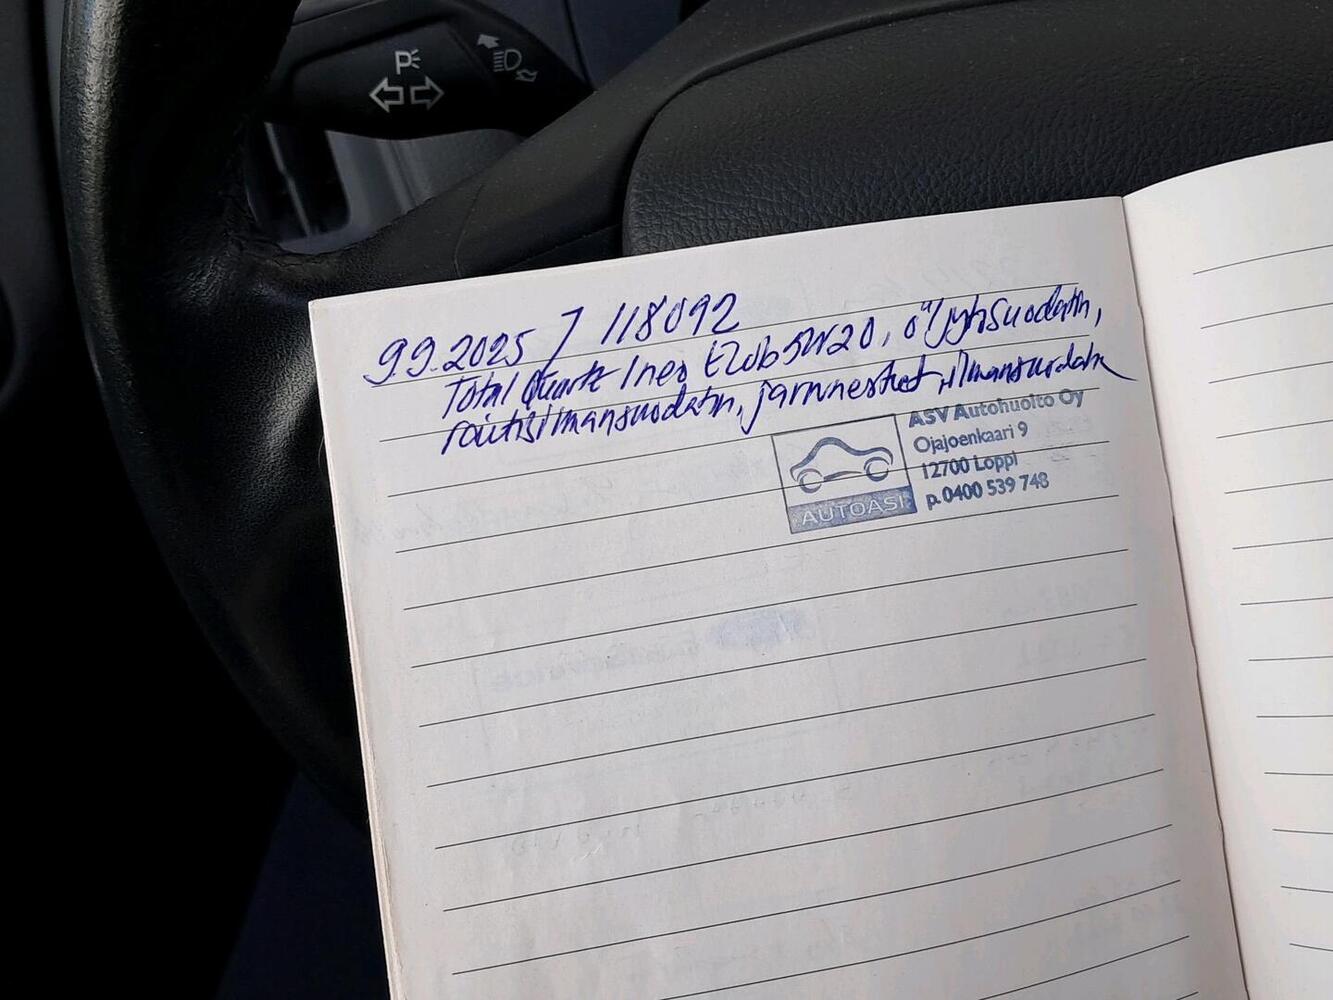 9.9.2025 / 118092
Total Quartz Ineo Ecob 5W20, öljynsuodatin,
raitisilmansuodatin, jarrunesteet, ilmansuodatin
ASV Autohuolto Oy
Ojajoenkaari 9
12700 Loppi
p. 0400 539 748
AUTOASI